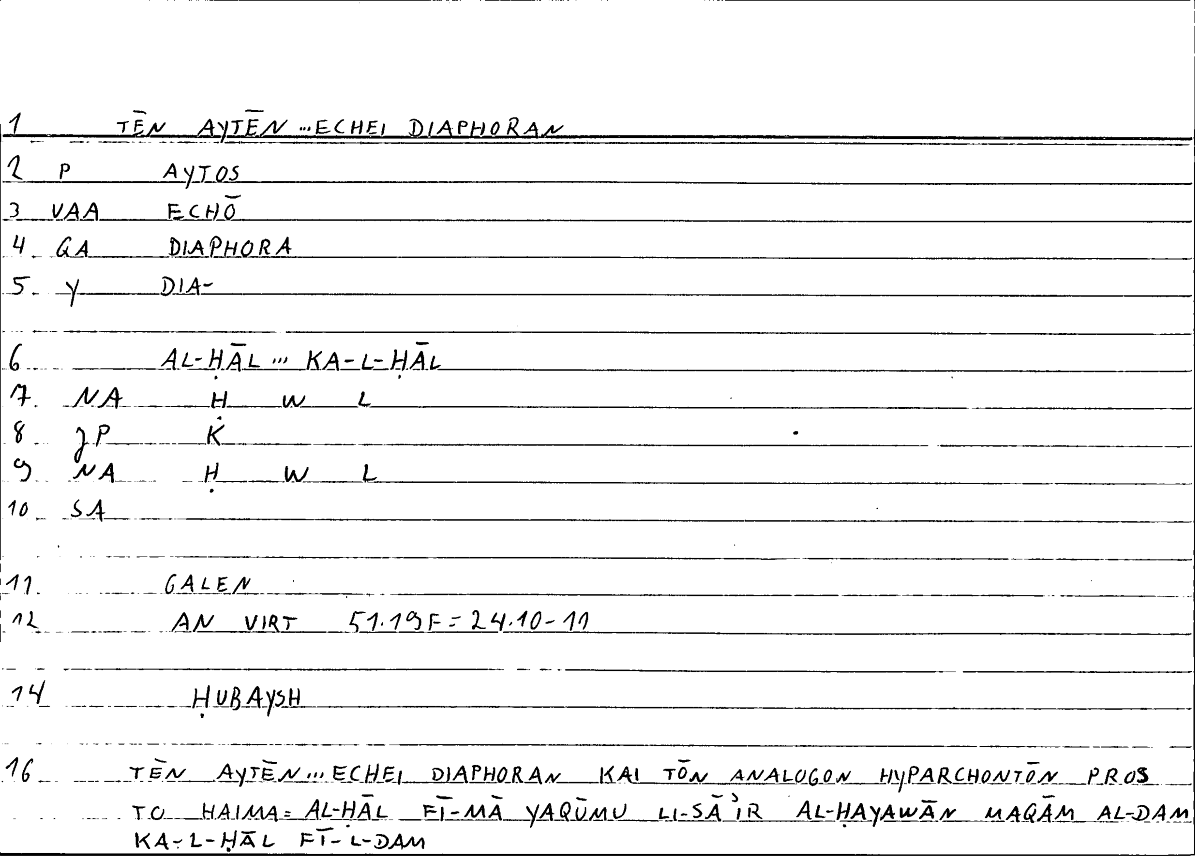 1 TĒN AYTĒN ... ECHEI DIAPHORAN
2 P AYTOS
3 VAA ECHŌ
4 GA DIAPHORA
5 Y DIA-
6 AL-ḤĀL ... KA-L-ḤĀL
7 NA Ḥ W L
8 JP K
9 NA Ḥ W L
10 SA
11 GALEN
12 AN VIRT 51.19F = 24.10-11
14 ḤUBAYSH
16 TĒN AYTĒN ... ECHEI DIAPHORAN KAI TŌN ANALOGON HYPARCHONTŌN PROS
TO HAIMA = AL-ḤĀL FĪ-MĀ YAQŪMU LI-SĀʾIR AL-ḤAYAWĀN MAQĀM AL-DAM
KA-L-ḤĀL FĪ-L-DAM